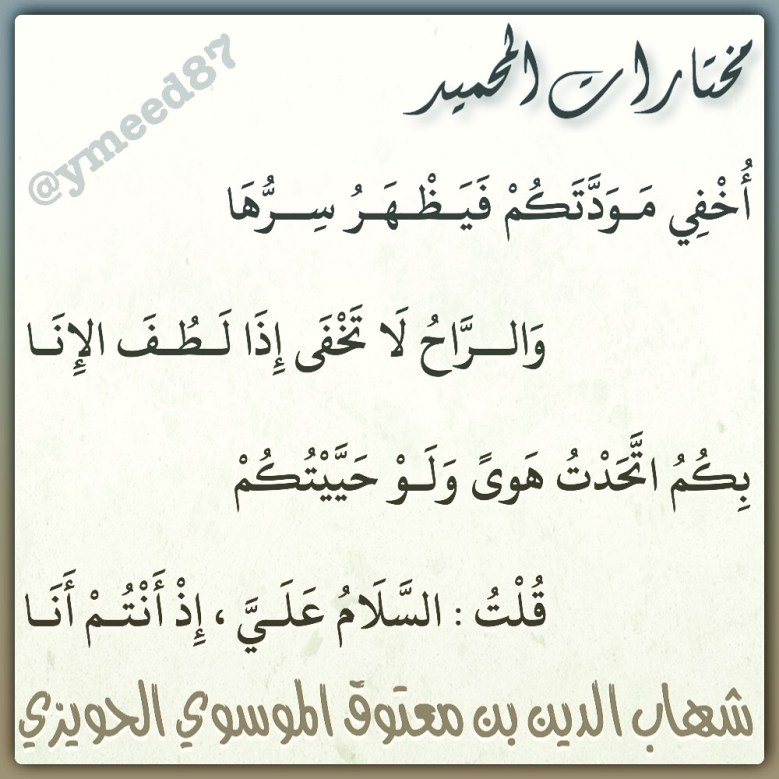 مختارات المحميد
@ymeed87
أُخْفِي مَـوَدَّتَكُمْ فَيَـظْـهَـرُ سِــرُّهَا
وَالــرَّاحُ لَا تَخْفَى إِذَا لَـطُـفَ الإِنَـا
بِكُمُ اتَّحَدْتُ هَوىً وَلَـوْ حَيَّيْتُكُمْ
قُلْتُ : السَّلَامُ عَلَـيَّ ، إِذْ أَنْتُـمْ أَنَـا
شهاب الدين بن معتوق الموسوي الحويزي